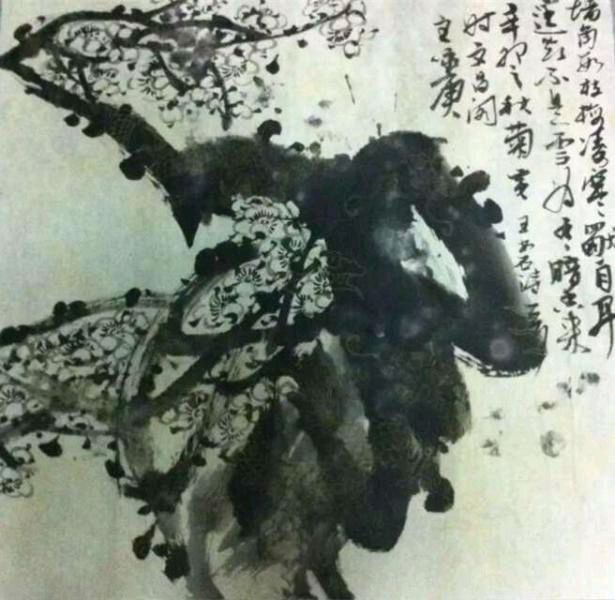 墙角数枝梅凌寒獨自开
遥知不是雪为有暗香来
辛卯之秋菊黄 王安石诗
时文昌阁